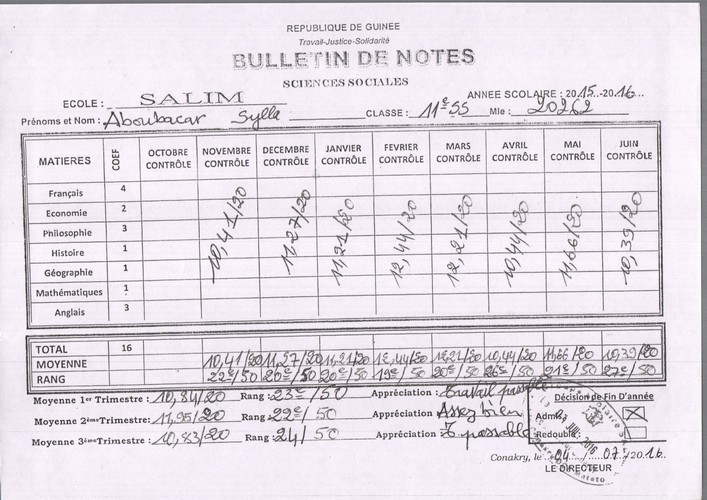 REPUBLIQUE DE GUINEE
Travail-Justice-Solidarité
BULLETIN DE NOTES
SCIENCES SOCIALES
ECOLE : SALIM
ANNEE SCOLAIRE : 2015-2016
Prénoms et Nom : Aboubacar Sylla CLASSE : 11e SS Mle : 20262
MATIERES COEF OCTOBRE CONTRÔLE NOVEMBRE CONTRÔLE DECEMBRE CONTRÔLE JANVIER CONTRÔLE FEVRIER CONTRÔLE MARS CONTRÔLE AVRIL CONTRÔLE MAI CONTRÔLE JUIN CONTRÔLE
Français 4
Economie 2
Philosophie 3
Histoire 1
Géographie 1
Mathématiques 1
Anglais 3
10,41/20 11,27/20 11,21/20 12,44/20 12,21/20 10,44/20 11,66/20 10,39/20
TOTAL 16
MOYENNE 10,41/20 11,27/20 11,21/20 12,44/20 12,21/20 10,44/20 11,66/20 10,39/20
RANG 22e/50 20e/50 20e/50 19e/50 20e/50 26e/50 21e/50 27e/50
Moyenne 1er Trimestre : 10,84/20 Rang : 23e/50 Appréciation : Travail passable
Moyenne 2ème Trimestre : 11,95/20 Rang : 22e/50 Appréciation Assez bien
Moyenne 3ème Trimestre : 10,83/20 Rang : 24/50 Appréciation : T. passable
Décision de Fin D'année
Admis
Redouble
Conakry, le 04/07/2016
LE DIRECTEUR